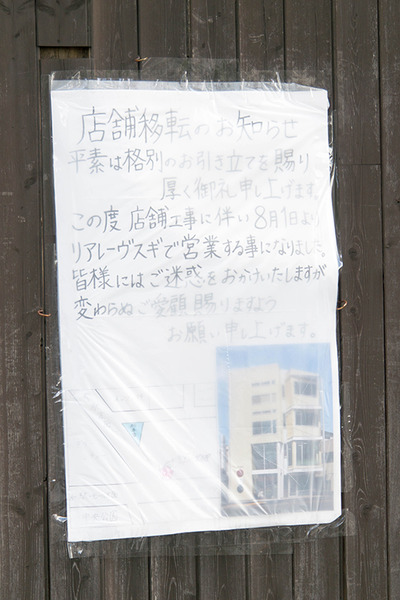 店舗移転のお知らせ
平素は格別のお引き立てを賜り
厚く御礼申し上げます
この度 店舗工事に伴い 8月1日より
リアレーヴスギで営業する事になりました。
皆様にはご迷惑をおかけいたしますが
変わらぬご愛顧 賜りますよう
お願い申し上げます。